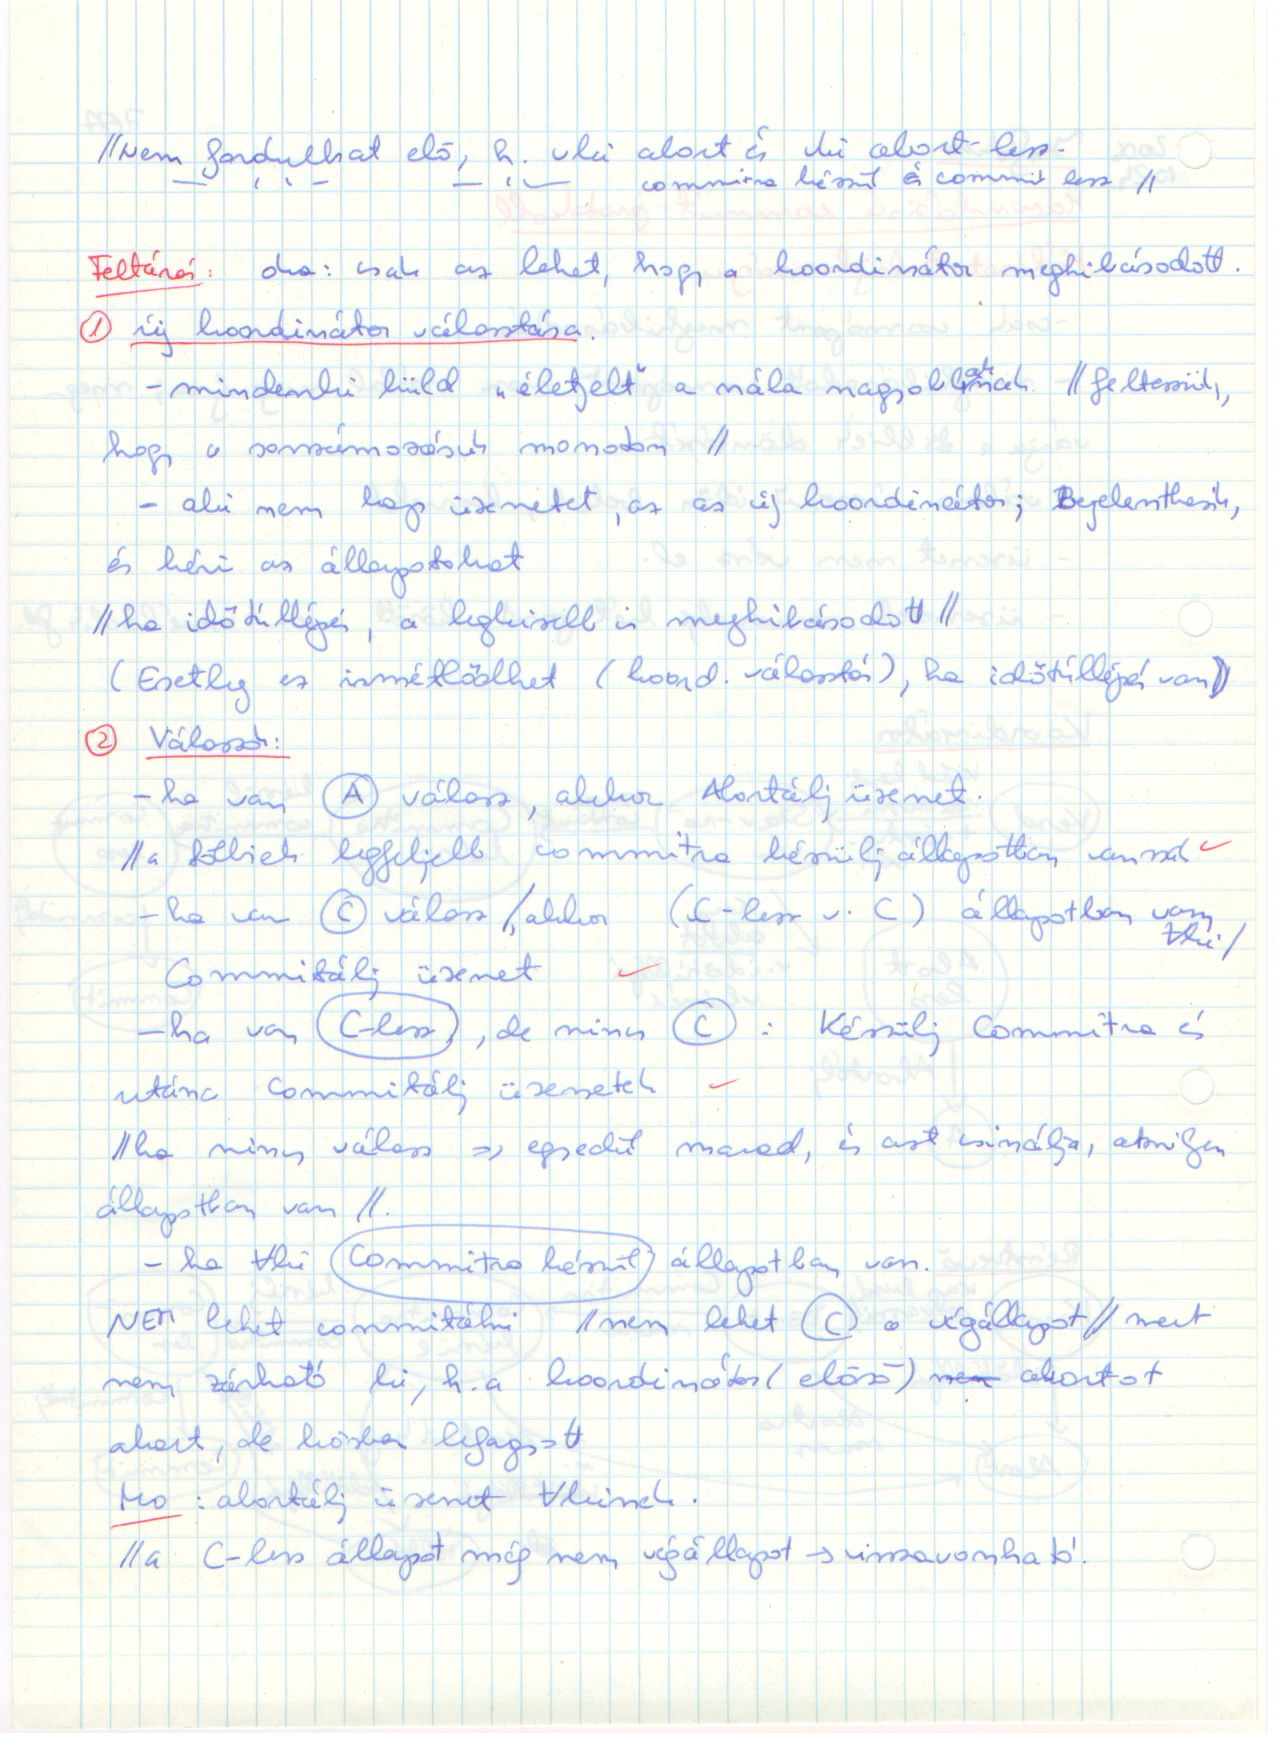 // Nem fordulhat elő, h. vki abort és vki abort-lesz.
commitra készül és commit lesz //
Feltárás: oka: csak az lehet, hogy a koordinátor meghibásodott.
① új koordinátor választása.
- mindenki küld „életjelt" a nála nagyobbaknak // feltesszük,
hogy a sorszámozásuk monoton //
- aki nem kap üzenetet, az az új koordinátor; Bejelentkezik,
és kéri az állapotokat
// ha időtúllépés, a legkisebb is meghibásodott //
(Esetleg ez ismétlődhet (koord. választás), ha időtúllépés van)
② Válaszok:
- ha van Ⓐ válasz, akkor Abortálj üzenet.
// a többiek legfeljebb commitra készülj állapotban vannak ✓
- ha van Ⓒ válasz /, akkor (C-lesz v. C) állapotban van
∀ki /
Commitálj üzenet ✓
- ha van C-lesz, de nincs Ⓒ : Készülj Commitra és
utána commitálj üzenetek ✓
// ha nincs válasz => egyedül marad, és azt csinálja, amilyen
állapotban van //.
- ha ∀ki Commitra készül állapotban van.
NEM lehet commitálni // nem lehet Ⓒ a végállapot // mert
nem zárható ki, h. a koordinátor (előző) abortot
akart, de közben lefagyott
Mo : abortálj üzenet ∀kinek.
// a C-lesz állapot még nem végállapot → visszavonható.